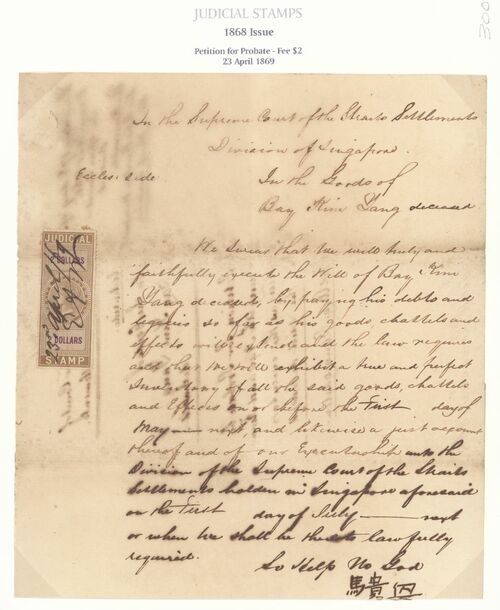 JUDICIAL STAMPS
1868 Issue
Petition for Probate - Fee $2
23 April 1869
300
In the Supreme Court of the Straits Settlements
Division of Singapore.
Eccles: side
In the Goods of
Bay Kim Yang deceased
We swear that we will truly and
faithfully execute the Will of Bay Kim
Yang deceased, by paying his debts and
legacies so far as his goods, chattels and
effects will extend and the law requires
and that we will exhibit a true and perfect
Inventory of all the said goods, chattels
and Effects on or before the First day of
May next, and likewise a just account
thereof and of our Executorship unto the
Division of the Supreme Court of the Straits
Settlements holden in Singapore aforesaid
on the First day of July next
or when we shall be thereto lawfully
required.
So Help Us God
馬貴
JUDICIAL
DOLLARS
DOLLARS
STAMP